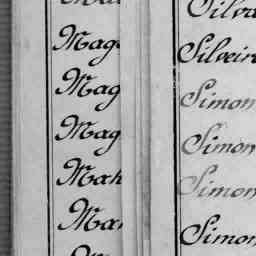 Mag
Mag
Mag
Mah
Ma
Silva
Silveir
Simon
Simon
Simon
Simon